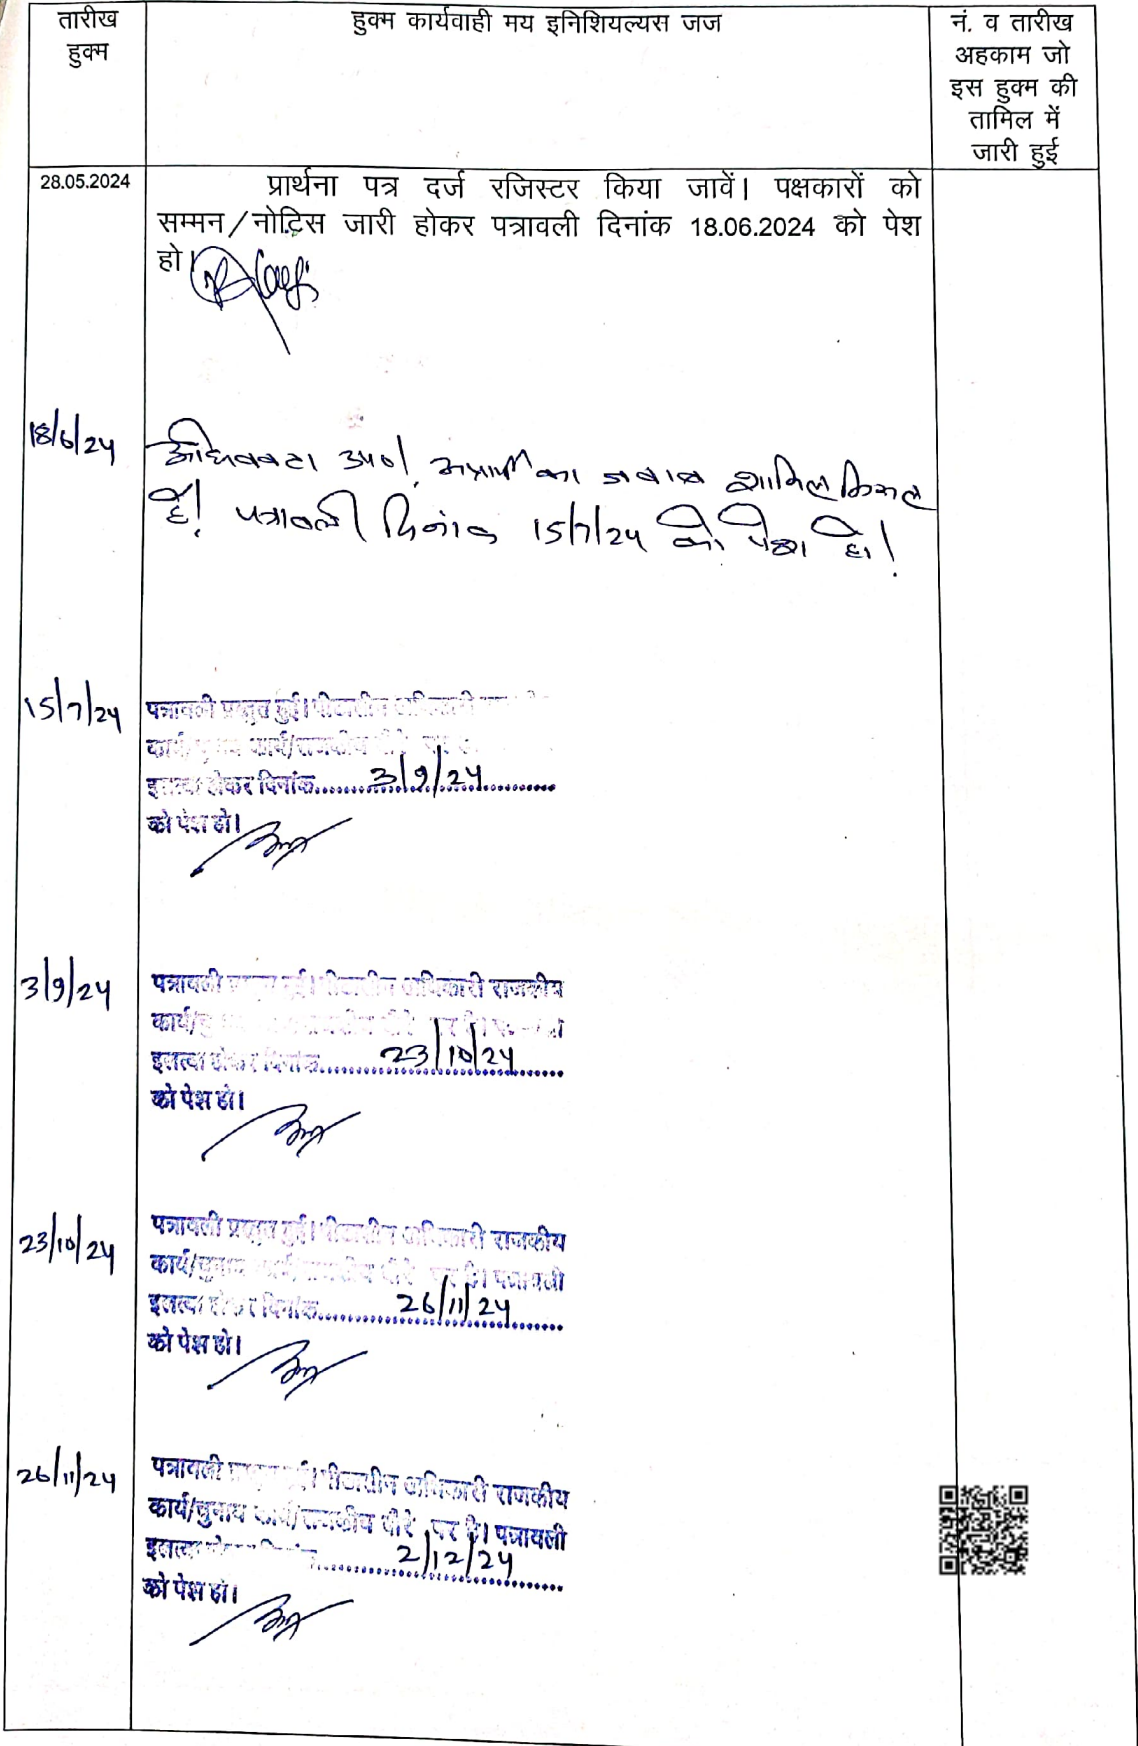 तारीख
हुक्म
हुक्म कार्यवाही मय इनिशियल्यस जज
नं. व तारीख
अहकाम जो
इस हुक्म की
तामिल में
जारी हुई
28.05.2024
प्रार्थना पत्र दर्ज रजिस्टर किया जावें। पक्षकारों को
सम्मन/नोटिस जारी होकर पत्रावली दिनांक 18.06.2024 को पेश
हो।
18/6/24
अधिवक्ता उप०। का जवाब शामिल
है। पत्रावली दिनांक 15/7/24 को पेश हो।
15/7/24
पत्रावली प्रस्तुत हुई। पीठासीन अधिकारी
कार्य/चुनाव कार्य/राजकीय दौरे पर
इत्तला होकर दिनांक 3/9/24
को पेश हो।
3/9/24
पत्रावली हुई। पीठासीन अधिकारी राजकीय
कार्य/ दौरे पर है।
इत्तला होकर दिनांक 23/10/24
को पेश हो।
23/10/24
पत्रावली प्रस्तुत हुई। पीठासीन अधिकारी राजकीय
कार्य/चुनाव कार्य/राजकीय दौरे पर है। पत्रावली
इत्तला होकर दिनांक 26/11/24
को पेश हो।
26/11/24
पत्रावली प्रस्तुत हुई। पीठासीन अधिकारी राजकीय
कार्य/चुनाव कार्य/राजकीय दौरे पर है। पत्रावली
इत्तला होकर दिनांक 2/12/24
को पेश हो।